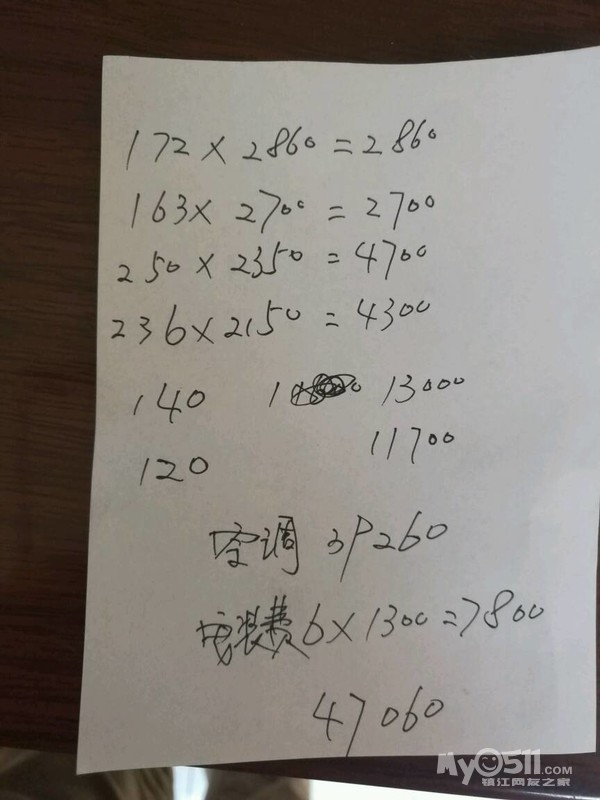 172×2860=2860
163×2700=2700
250×2350=4700
236×2150=4300
140 13000
11700
120
空调 39260
安装费 6×1300=7800
47060
My0511.com
镇江网友之家